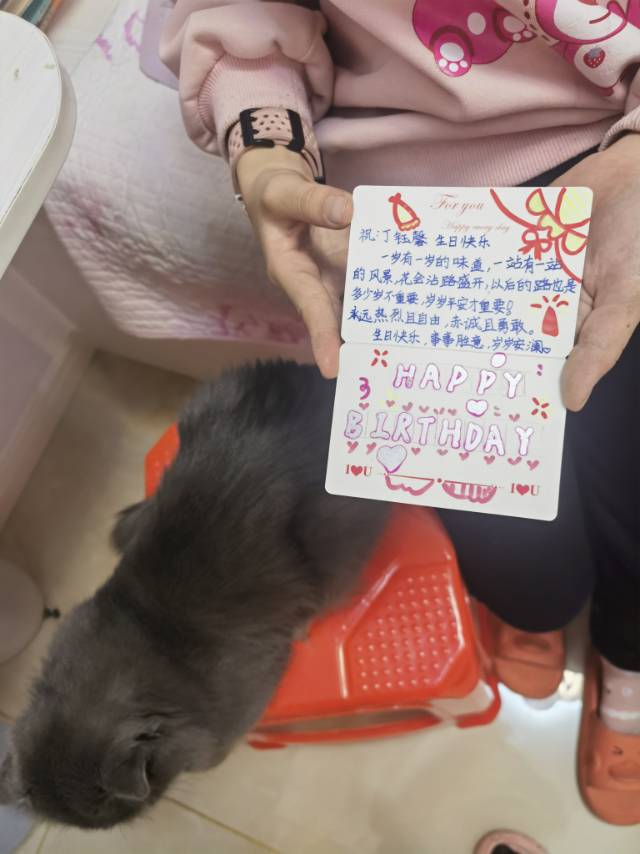 For you
Happy every day
祝汀钰馨 生日快乐
一岁有一岁的味道，一站有一站
的风景，花会沿路盛开，以后的路也是
多少岁不重要，岁岁平安才重要！
永远热烈且自由，赤诚且勇敢。
生日快乐，事事胜意，岁岁安澜。
HAPPY
BIRTHDAY
I❤U I❤U